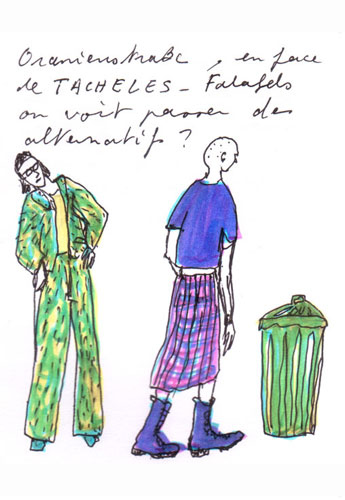 Oranienstraße, en face
de TACHELES - Falafels
on voit passer des
alternatifs ?